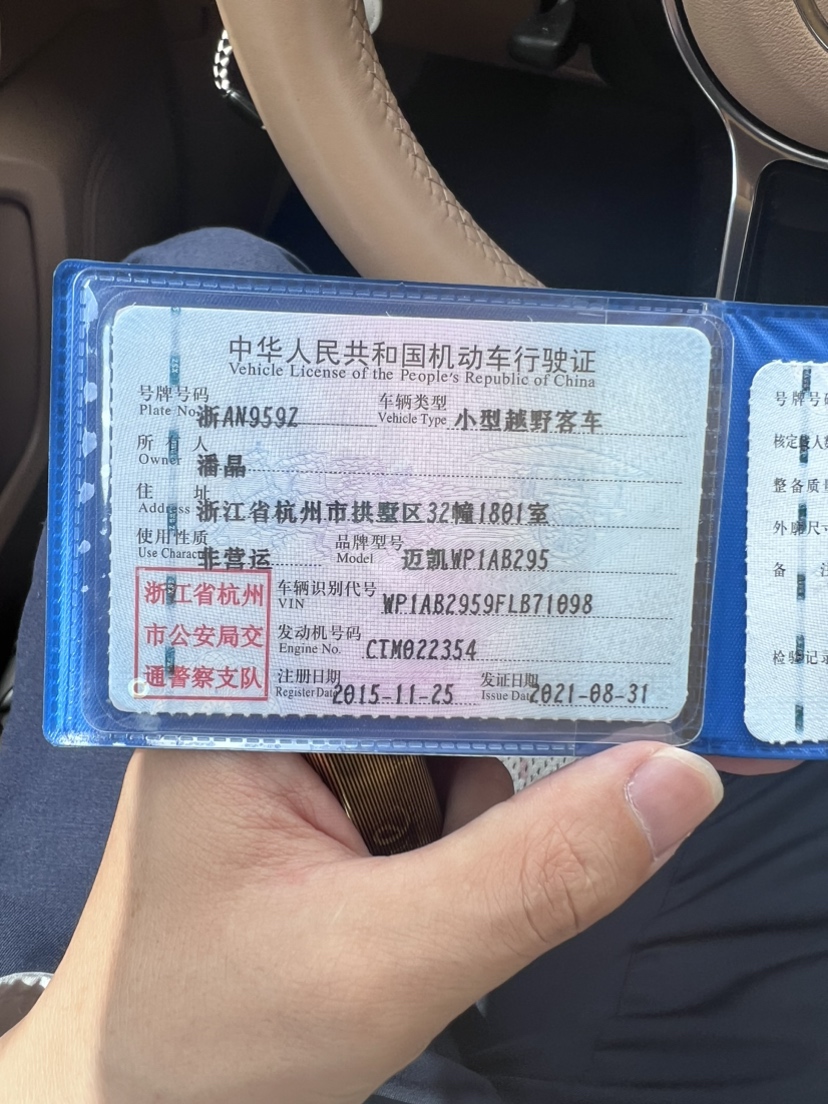 中华人民共和国机动车行驶证
Vehicle License of the People's Republic of China
号牌号码 浙AN959Z 车辆类型 小型越野客车
Plate No. Vehicle Type
所有人 潘晶
Owner
住址 浙江省杭州市拱墅区32幢1801室
Address
使用性质 非营运 品牌型号 迈凯WP1AB295
Use Character Model
浙江省杭州
市公安局交
通警察支队
车辆识别代号 WP1AB2959FLB71098
VIN
发动机号码 CTM022354
Engine No.
注册日期 2015-11-25 发证日期 2021-08-31
Register Date Issue Date
号牌号码
核定载人数
整备质量
外廓尺寸
备
检验记录